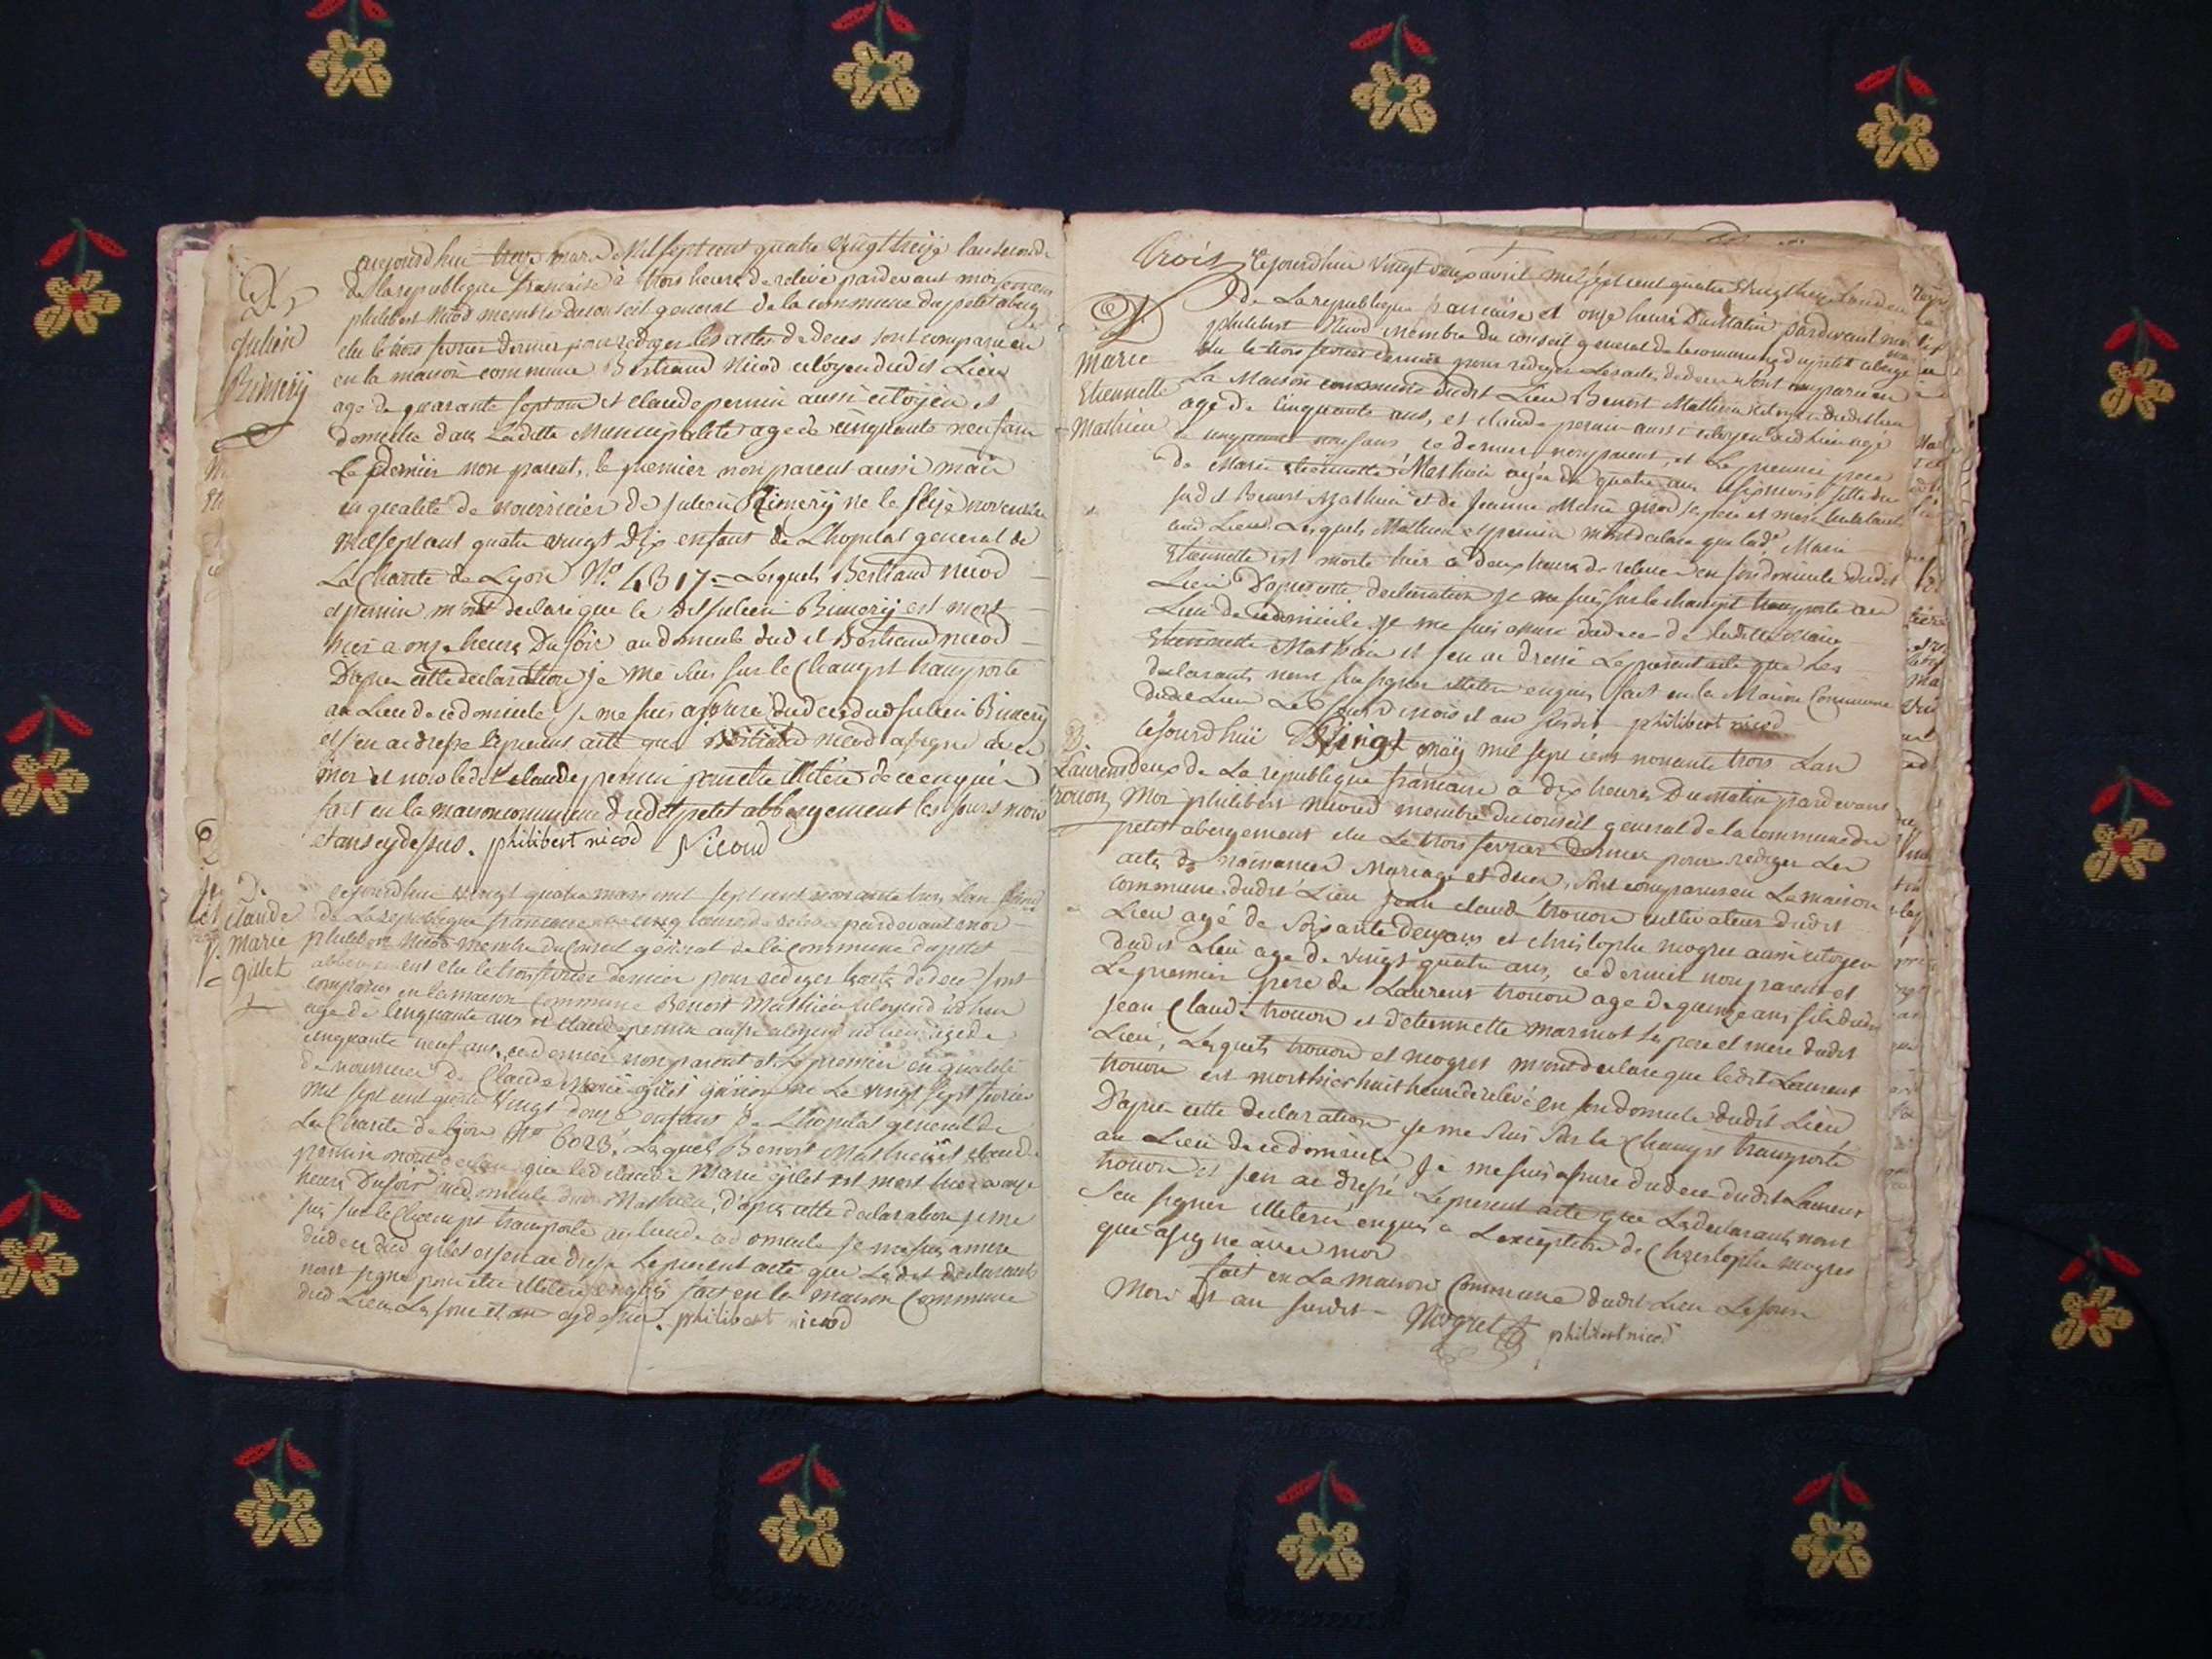 D.
julien
Rimerij
aujourd'hui treize mars mil sept cent quatre vingt treize l'an second
de la republique francaise à trois heures de relevé pardevant moi
philibert nicod membre du conseil general de la commune du petit aberg
elu le trois fevrier dernier pour rediger les actes de deces sont comparu en
en la maison commune Bertrand Nicod citoyen dudit Lieu
agé de quarante sept ans et claude perrin aussi citoyen et
domicilie dans Laditte Municipalité agé de cinquante neuf ans
Le dernier non parent, le premier non parent aussi mais
en qualité de nourricier de julien Rimerij né le seize novembre
mil sept cent quatre vingt dix enfant de L'hopital general de
La Charité de Lyon N.º 4B17 = Lesquels Bertrand nicod
et perrin m'ont declaré que le dit julien Rimerij est mort
hier a onze heures du soir au domicile dud it Bertrand nicod
D'apres cette declaration je me suis sur le champt transporté
au Lieu de ce domicile, je me suis assuré du deces dud julien Rimerij
et j'en ai dressé le present acte que Bertrand nicod a signé avec
moi et non ledit claude perrin pour etre illiteré de ce enquis
fait en la maison commune dudit petit abbergement les jours mois
et an cy dessus. philibert nicod Nicoud
D.
claude
marie
gillet
cejourd'hui vingt quatre mars mil sept cent nonante trois L'an second
de La republique francaise a cinq heures de relevé pardevant moi
philibert Nicod membre du conseil general de la commune du petit
abbergement elu le trois fevrier dernier pour rediger les actes de deces sont
comparus en la maison commune Benoit Mathieu citoyen dud lieu
agé de cinquante ans et claude perrin aussi citoyen dud lieu agé de
cinquante neuf ans, ce dernier non parent et Le premier en qualité
de nourricier de Claude Marie gilet né Le vingt sept fevrier
mil sept cent quatre vingt douze enfant de L'hopital general de
La Charité de Lyon N.º Lesquels Benoit Mathieu et claude
perrin m'ont declaré que led claude Marie gilet est mort hier a onze
heures du soir au domicile dud Mathieu, D'apres cette declaration je me
suis sur le Champt transporté au lieu de ce domicile je me suis assuré
du deces dud gilet et j'en ai dressé Le present acte que Lesdits declarants
n'ont signé pour etre illiteré enquis fait en la maison Commune
dud Lieu Les jour et an cy dessus. philibert nicod
trois
D.
marie
Etiennette
Mathieu
Cejourd'hui vingt deux avril mil sept cent quatre vingt treize L'an deux
de La republique francaise et onze heures du matin pardevant moi
philibert Nicod membre du conseil general de la commune du petit aberge
elu le trois fevrier dernier pour rediger Les actes de deces sont comparu en
La Maison commune dudit Lieu Benoit Mathieu citoyen dudit lieu
agé de cinquante ans, et claude perrin aussi citoyen dud lieu agé
de cinquante neuf ans ce dernier non parent, et Le premier pere
de Marie Etiennette Mathieu agée de quatre ans six mois fille du
sudit Benoit Mathieu et de Jeanne Marie nicod ses pere et mere habitants
aud Lieu. Lesquels Mathieu et perrin m'ont declaré que lad.e Marie
Etiennette est morte hier a deux heures de relevé en son domicile dudit
Lieu D'apres cette declaration je me suis sur le champt transporté au
Lieu de ce domicile je me suis assuré du deces de laditte Marie
Etiennette Mathieu et j'en ai dressé Le present acte que Les
declarants n'ont su signer illiteré enquis fait en la Maison Commune
dudit Lieu Les jour mois et an susdit philibert nicod
D.
Laurent
trouon
Cejourd'hui Vingt maÿ mil sept cent nonante trois L'an
deux de La republique francaise a dix heures Du Matin pardevant
Moi philibert nicod membre du conseil general de la commune du
petit abergement elu Le trois fevrier dernier pour rediger Les
actes de naissance Mariage et deces, sont comparus en La maison
commune dudit Lieu jean claude trouon cultivateur dudit
Lieu agé de soixante deux ans et christophe mogret aussi citoyen
dudit Lieu agé de vingt quatre ans, ce dernier non parent et
Le premier pere de Laurent trouon agé de quinze ans fils dudit
jean Claude trouon et d'etiennette marinet ses pere et mere dudit
Lieu, Lesquels trouon et mogret m'ont declaré que ledit Laurent
trouon est mort hier huit heure de relevé en son domicile dudit Lieu
D'apres cette declaration je me suis sur le Champt transporté
au Lieu de ce domicile, je me suis assuré du deces dudit Laurent
trouon et j'en ai dressé Le present acte que Les declarants n'ont
seu signer illiteré enquis a L'exeption de Christophe Mogret
que a signé avec moi
fait en La maison Commune dudit Lieu Les jour
Mois et an susdit Mogret philibert nicod